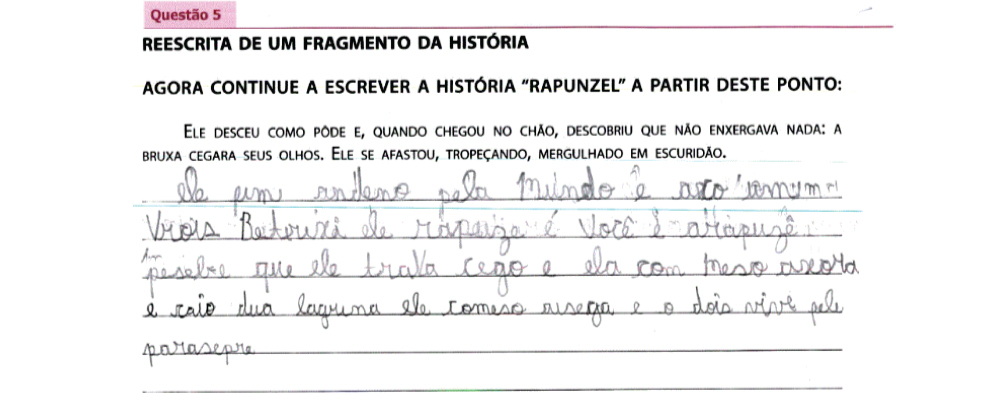 Questão 5
REESCRITA DE UM FRAGMENTO DA HISTÓRIA
AGORA CONTINUE A ESCREVER A HISTÓRIA "RAPUNZEL" A PARTIR DESTE PONTO:
ELE DESCEU COMO PÔDE E, QUANDO CHEGOU NO CHÃO, DESCOBRIU QUE NÃO ENXERGAVA NADA: A
BRUXA CEGARA SEUS OLHOS. ELE SE AFASTOU, TROPEÇANDO, MERGULHADO EM ESCURIDÃO.
ele andeno pela Mundo ê
Vrois ele é Você é arapuzê
que ele trava cego e ela com meso axora
e caio dua laguna ele comeso e o dois vivê pele
parasepre